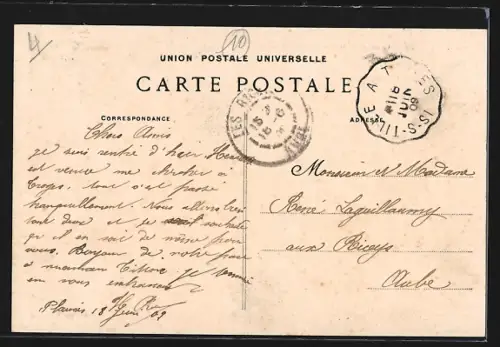 4
10
UNION POSTALE UNIVERSELLE
CARTE POSTALE
CORRESPONDANCE
ADRESSE
LES RICEYS
AUBE
IS-S-TILLE A T
JUIN
09
Chers Amis
je suis rentré d'hier
est venue me chercher à
Troyes, tout s'est passé
tranquillement. Nous allons bien
tous deux et je souhaite
qu'il en soit de même pour
vous. de notre part
à je termine
en vous embrassant
18 Juin 09
Monsieur et Madame
René Laguillaumy
aux Riceys
Aube